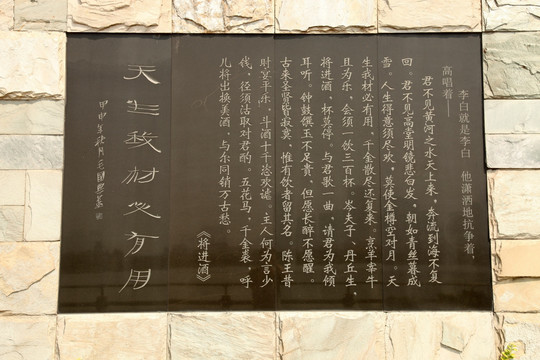 李白就是李白，他潇洒地抗争着，
高唱着——
君不见黄河之水天上来，奔流到海不复
回。君不见高堂明镜悲白发，朝如青丝暮成
雪。人生得意须尽欢，莫使金樽空对月。天
生我材必有用，千金散尽还复来。烹羊宰牛
且为乐，会须一饮三百杯。岑夫子，丹丘生，
将进酒，杯莫停。与君歌一曲，请君为我倾
耳听。钟鼓馔玉不足贵，但愿长醉不愿醒。
古来圣贤皆寂寞，惟有饮者留其名。陈王昔
时宴平乐，斗酒十千恣欢谑。主人何为言少
钱，径须沽取对君酌。五花马，千金裘，呼
儿将出换美酒，与尔同销万古愁。
《将进酒》
天生我材必有用